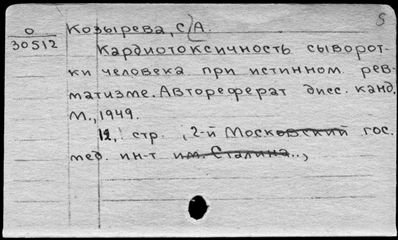 O
30512
Козырева, С А.
5
Кардиотоксичность сыворот-
ки человека при истинном рев-
матизме. Автореферат дисс. канд.
М., 1949.
12, стр. , 2-й Московский гос.
мед. ин-т им. Сталина..,